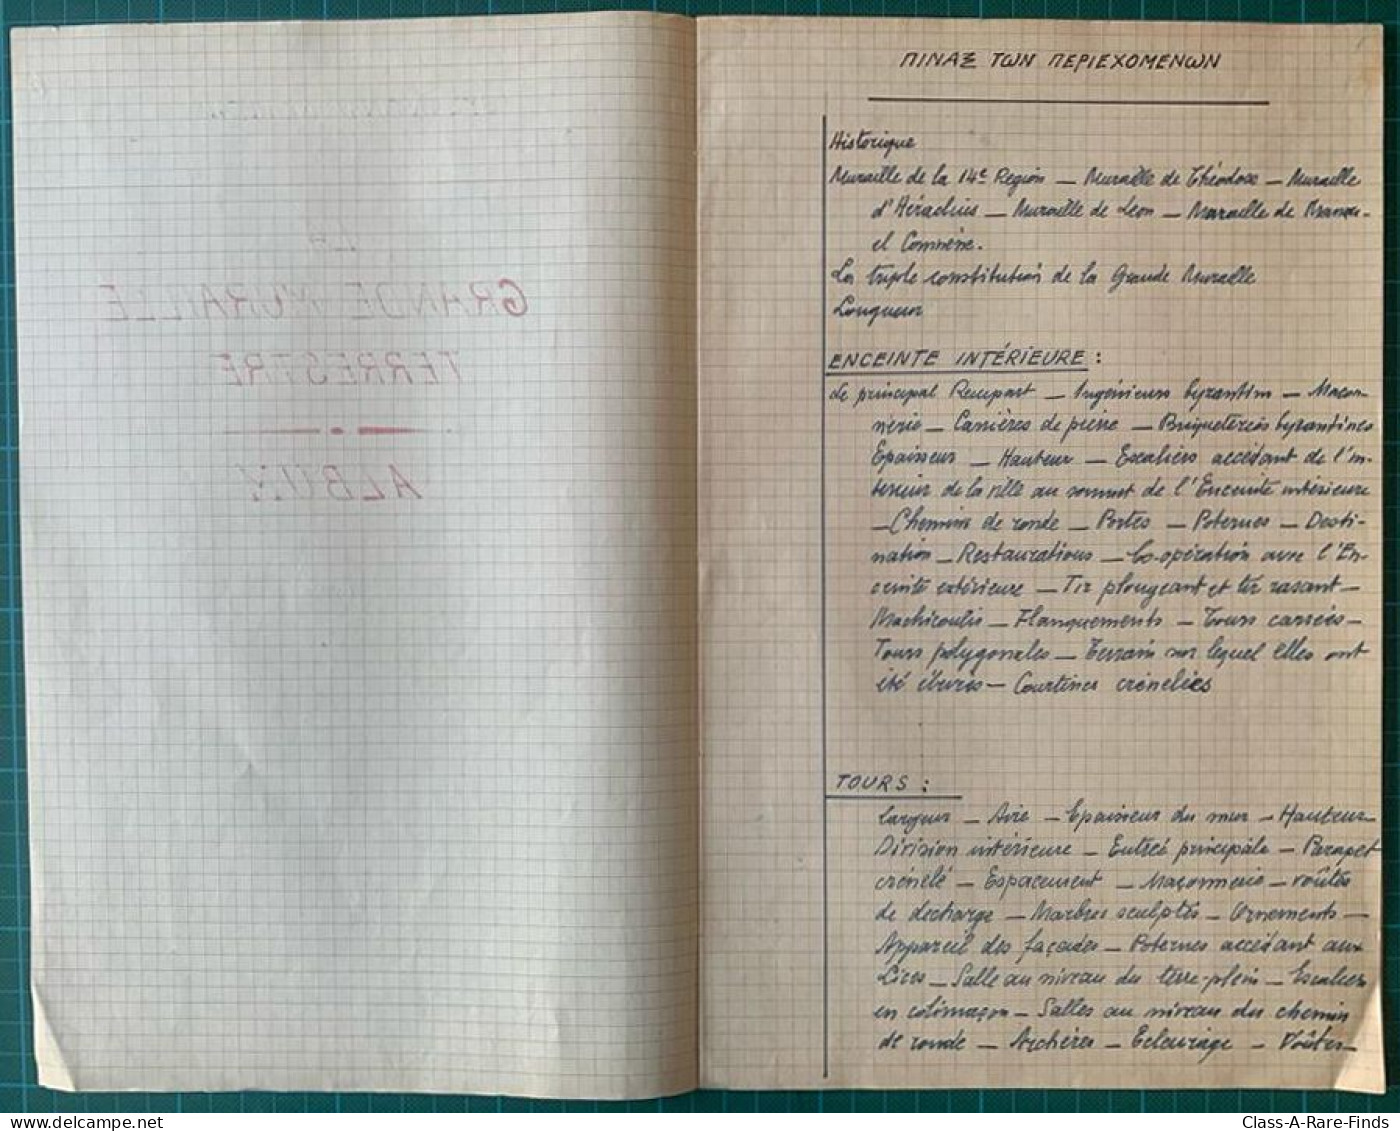 LA
GRANDE MURAILLE
TERRESTRE
ΠΙΝΑΞ ΤΩΝ ΠΕΡΙΕΧΟΜΕΝΩΝ
Historique
Muraille de la 14e Region — Muraille de Théodose — Muraille
d'Héraclius — Muraille de Leon — Muraille de Manu-
el Comnène.
La triple constitution de la Grande Muraille
Longueur
ENCEINTE INTÉRIEURE :
Le principal Rempart — Ingénieurs byzantins — Maçon-
nerie — Carrières de pierre — Briqueteries byzantines
Epaisseur — Hauteur — Escaliers accédant de l'in-
terieur de la ville au sommet de l'Enceinte intérieure
— Chemin de ronde — Portes — Poternes — Desti-
nation — Restaurations — Co-opération avec l'En-
ceinte extérieure — Tir plongeant et tir rasant —
Machicoulis — Flanquements — Tours carrées —
Tours polygonales — Terrain sur lequel elles ont
été élevées — Courtines crénelées
TOURS :
Largeur — Aire — Epaisseur du mur — Hauteur —
Division intérieure — Entrée principale — Parapet
crénelé — Espacement — Maçonnerie — voûtes
de decharge — Marbres sculptés — Ornements —
Appareil des façades — Poternes accédant aux
Lices — Salle au niveau du terre-plein — Escaliers
en colimaçon — Salles au niveau du chemin
de ronde — Archères — Eclairage — Voûtes —
Class-A-Rare-Finds